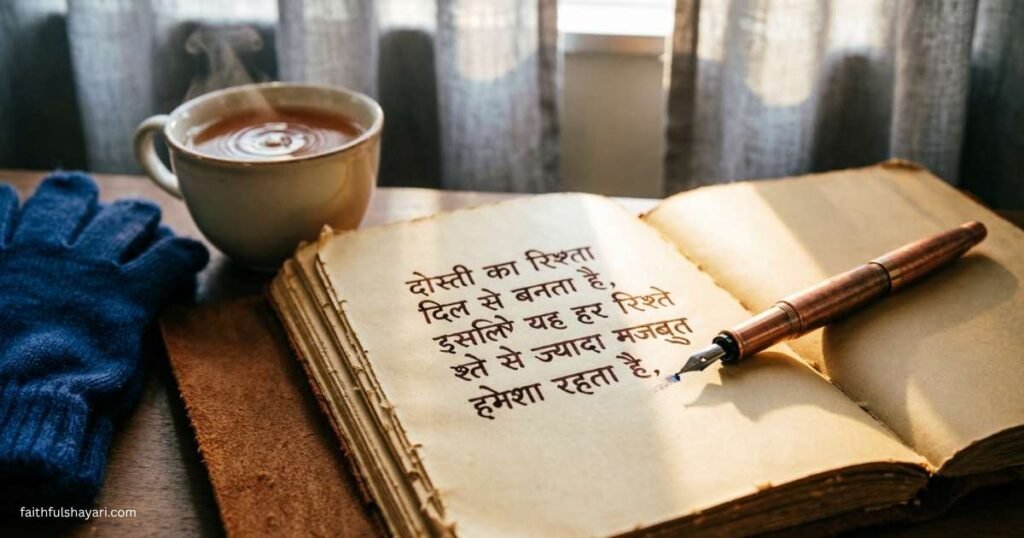 दोस्ती का रिश्ता
दिल से बनता है,
इसलिए यह हर रिश्ते
श्ते से ज्यादा मजबुत
हमेशा रहता है,
faithfulshayari.com